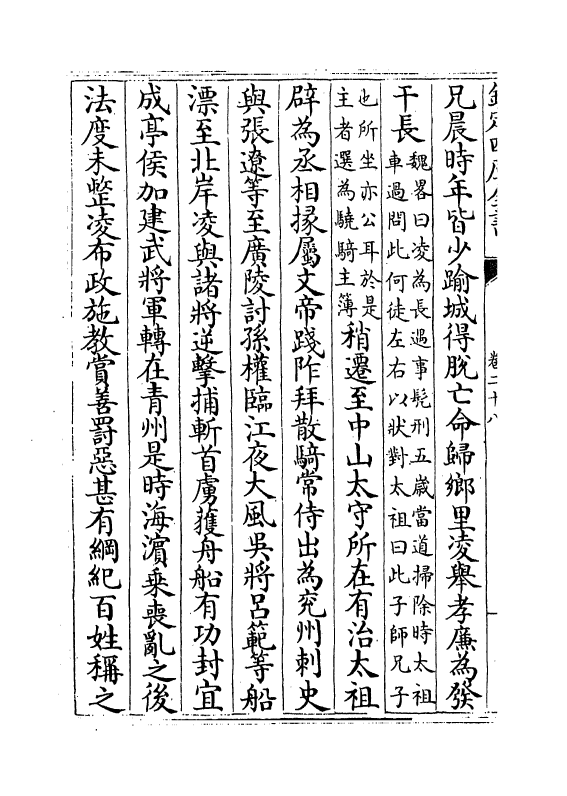 欽定四庫全書
卷二十八
兄晨時年皆少踰城得脫亡命歸鄉里凌舉孝廉為發
干長魏畧曰凌為長遇事髡刑五歲當道掃除時太祖
車過問此何徒左右以狀對太祖曰此子師兄子
也所坐亦公耳於是
主者選為驍騎主簿稍遷至中山太守所在有治太祖
辟為丞相掾屬文帝踐阼拜散騎常侍出為兖州刺史
與張遼等至廣陵討孫權臨江夜大風吳將呂範等船
漂至北岸凌與諸將逆擊捕斬首虜獲舟船有功封宜
成亭侯加建武將軍轉在青州是時海濵乘喪亂之後
法度未整凌布政施教賞善罰惡甚有綱紀百姓稱之